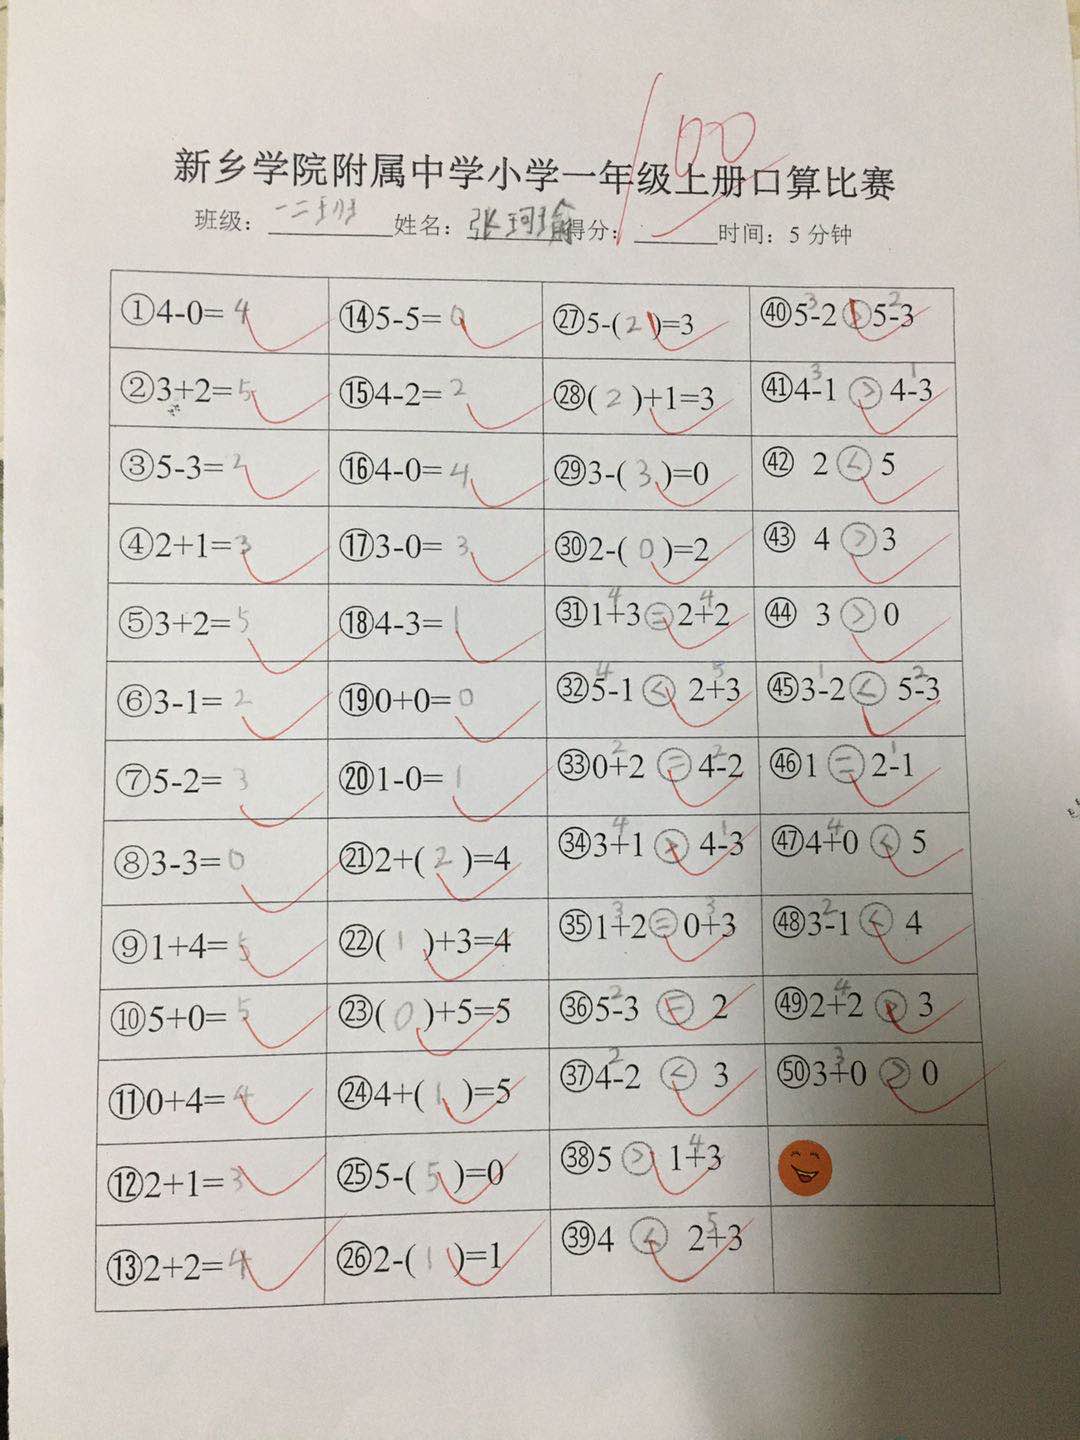 100
新乡学院附属中学小学一年级上册口算比赛
班级：一三班 姓名：张珂瑜 得分： 时间：5分钟
①4-0=4 ⑭5-5=0 ㉗5-(2)=3 ㊵5-2>5-3 3 2
②3+2=5 ⑮4-2=2 ㉘(2)+1=3 ㊶4-1>4-3 3 1
③5-3=2 ⑯4-0=4 ㉙3-(3)=0 ㊷2<5
④2+1=3 ⑰3-0=3 ㉚2-(0)=2 ㊸4>3
⑤3+2=5 ⑱4-3=1 ㉛1+3=2+2 4 4 ㊹3>0
⑥3-1=2 ⑲0+0=0 ㉜5-1<2+3 4 5 ㊺3-2<5-3 1 2
⑦5-2=3 ⑳1-0=1 ㉝0+2=4-2 2 2 ㊻1=2-1 1
⑧3-3=0 ㉑2+(2)=4 ㉞3+1>4-3 4 1 ㊼4+0<5 4
⑨1+4=5 ㉒(1)+3=4 ㉟1+2=0+3 3 3 ㊽3-1<4 2
⑩5+0=5 ㉓(0)+5=5 ㊱5-3=2 2 ㊾2+2>3 4
⑪0+4=4 ㉔4+(1)=5 ㊲4-2<3 2 ㊿3+0>0 3
⑫2+1=3 ㉕5-(5)=0 ㊳5>1+3 4
⑬2+2=4 ㉖2-(1)=1 ㊴4<2+3 5